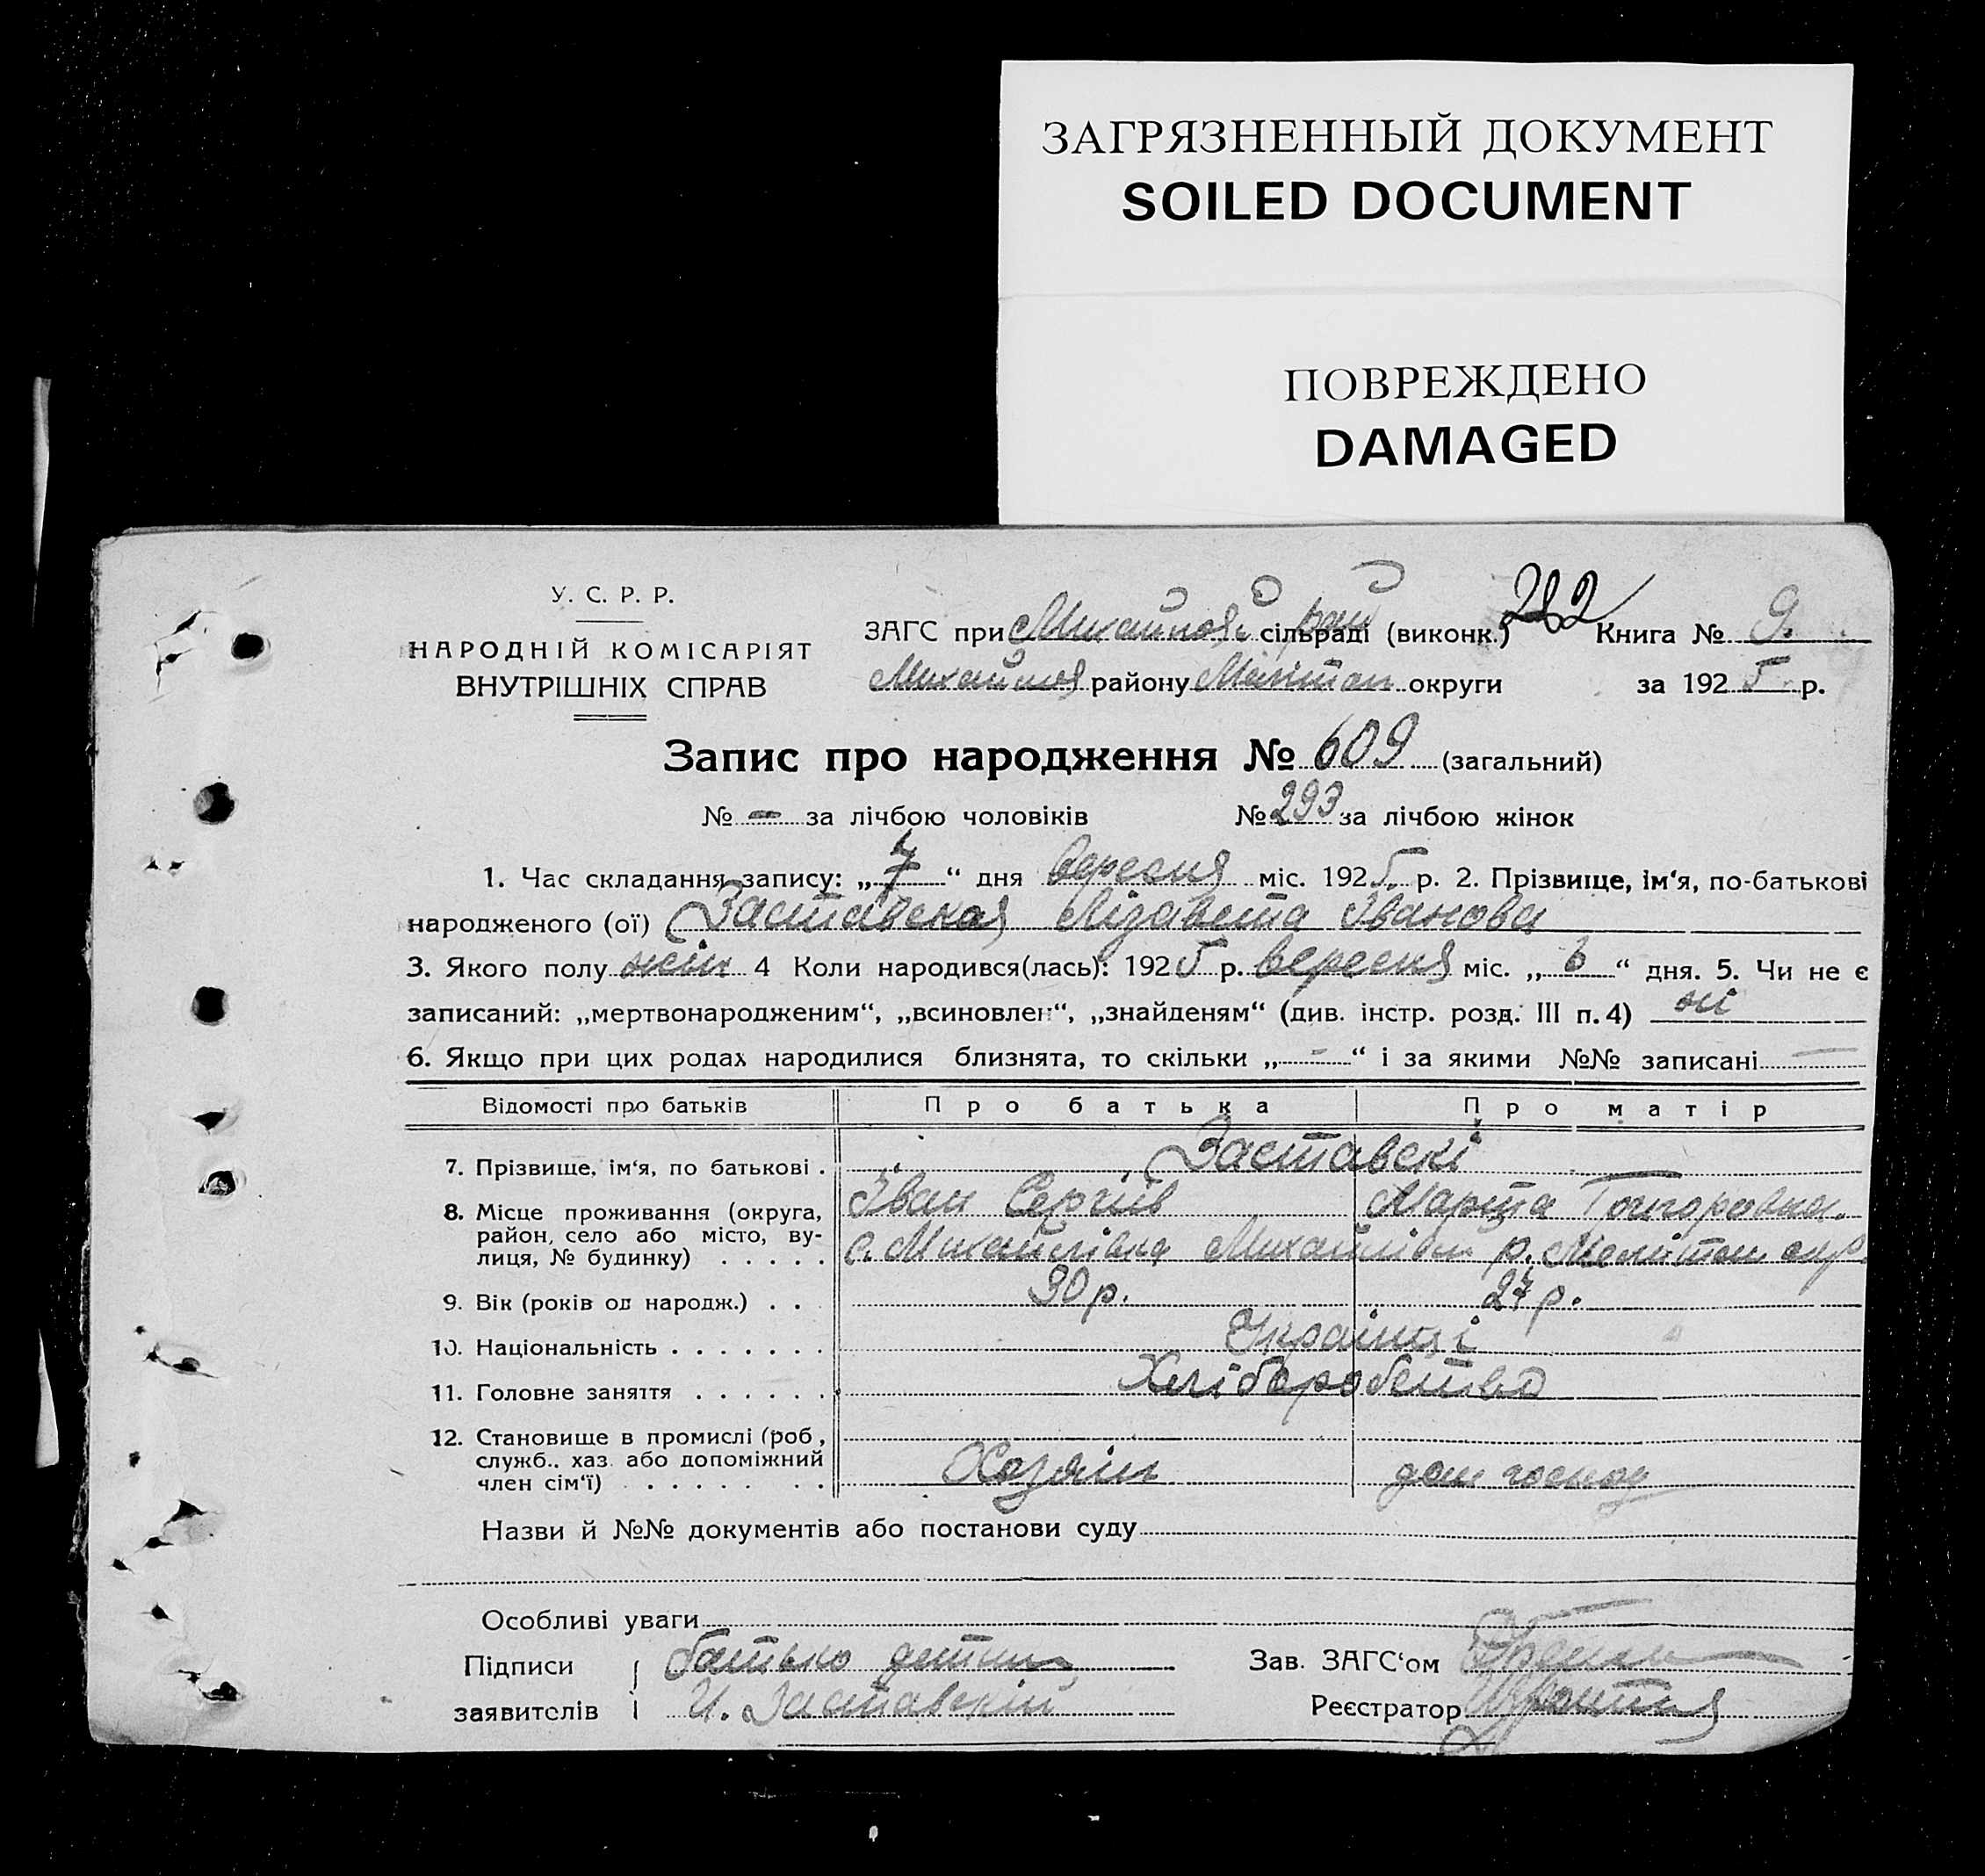 ЗАГРЯЗНЕННЫЙ ДОКУМЕНТ
SOILED DOCUMENT
ПОВРЕЖДЕНО
DAMAGED
У. С. Р. Р.
НАРОДНІЙ КОМІСАРІЯТ
ВНУТРІШНІХ СПРАВ
ЗАГС при рай сільраді (виконк.) 282 Книга № 9.
району Мелітоп округи за 1925 р.
Запис про народження № 609 (загальний)
№ - за лічбою чоловіків № 293 за лічбою жінок
1. Час складання запису: „7“ дня вересня міс. 1925 р. 2. Прізвище, ім‘я, по-батькові
народженого (ої) Заставская Лізавета Іванова
3. Якого полу жін 4 Коли народився(лась): 1925 р. вересня міс. „6“ дня. 5. Чи не є
записаний: „мертвонародженим“, „всиновлен“, „знайденям“ (див. інстр. розд. III п. 4) ні
6. Якщо при цих родах народилися близнята, то скільки „-“ і за якими №№ записані —
Відомості про батьків Про батька Про матір
7. Прізвище, ім‘я, по батькові . Заставскі
Іван Сергіїв Марфа
8. Місце проживання (округа,
район, село або місто, ву-
лиця, № будинку) . . . . . с. Михайлівка Михайлівск р. Мелітоп окр.
9. Вік (років од народж.) . . . 30 р. 27 р.
10. Національність . . . . . . . Українці
11. Головне заняття . . . . . . Хліборобство
12. Становище в промислі (роб.,
служб., хаз. або допоміжний
член сім‘ї) . . . . . . . Хозяїн дом господ
Назви й №№ документів або постанови суду
Особливі уваги
Підписи батько дитини Зав. ЗАГС‘ом
заявителів И. Заставский Реєстратор